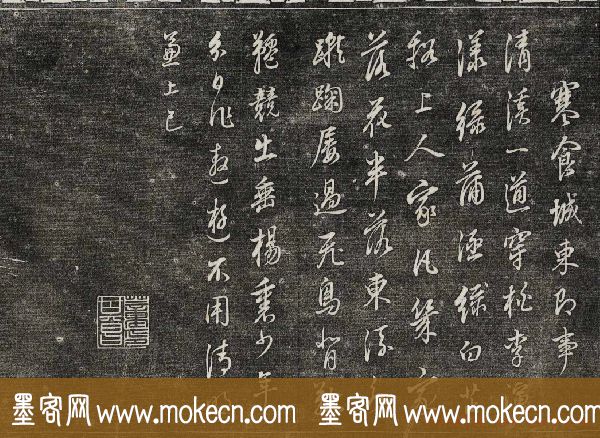 寒食城東即事
清溪一道穿桃李演
漾綠蒲涵綠白芷
谿上人家凡幾家
落花半落東流
蹴踘屢過飛鳥背
韆競出垂楊裏少年
分日作遨遊不用清明
兼上巳
墨客网 www.mokecn.com 墨客网 www.mokecn.com